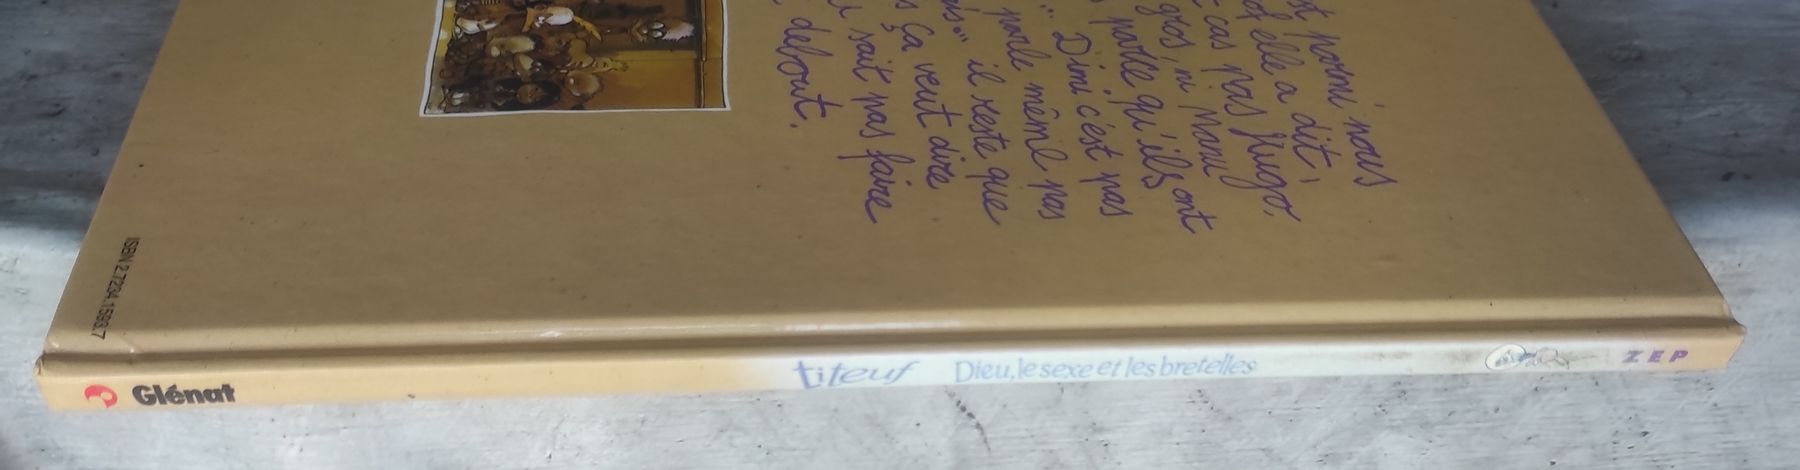 st parmi nous
elle a dit,
cas pas Hugo,
gros, ni Manu
parce qu'ils ont
Dimi c'est pas
parle même pas
il reste que
ça veut dire
sait pas faire
debout.
ISBN 2.7234.1593.7
Glénat
titeuf Dieu, le sexe et les bretelles
ZEP